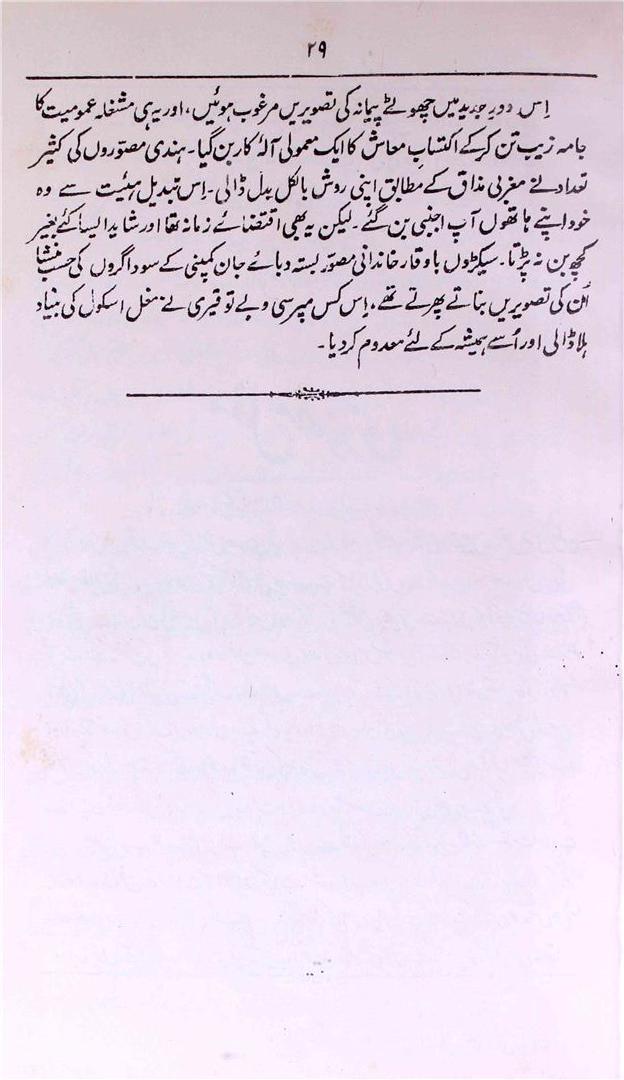 ۲۹
اِس دورِ جدید میں چھوٹے پیمانہ کی تصویریں مرغوب ہوئیں، اور یہی مشغلہ عمومیت کا
جامہ زیب تن کر کے اکتساب معاش کا ایک معمولی آلۂ کار بن گیا۔ ہندی مصوّروں کی کثیر
تعداد نے مغربی مذاق کے مطابق اپنی روش بالکل بدل ڈالی۔ اِس تبدیل ہیئت سے وہ
خود اپنے ہاتھوں آپ اجنبی بن گئے۔ لیکن یہ بھی اقتضائے زمانہ تھا اور شاید ایسا کئے بغیر
کچھ بن نہ پڑتا۔ سیکڑوں باوقار خاندانی مصوّر بستہ دبائے جان کمپنی کے سوداگروں کی حسب منشا
اُن کی تصویریں بناتے پھرتے تھے، اِس کس مپرسی و بے توقیری نے مغل اسکول کی بنیاد
ہلا ڈالی اور اُسے ہمیشہ کے لئے معدوم کر دیا۔